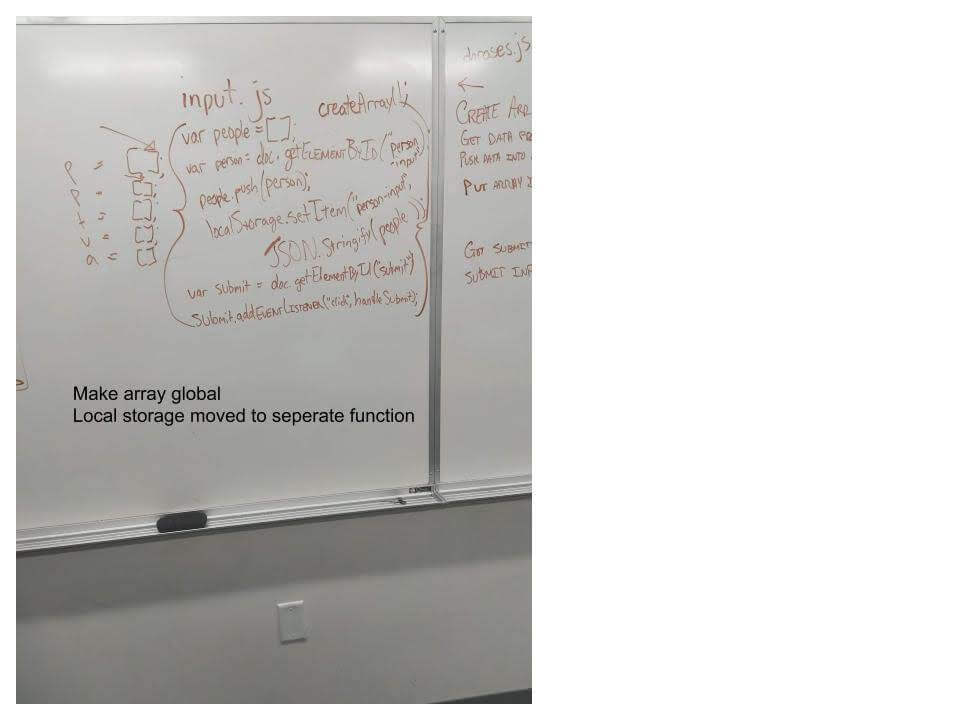 input.js
createArray();
var people = [];
var person = doc.getElementById("person
-input")
people.push(person);
localStorage.setItem("person-input",
JSON.Stringify(people));
var submit = doc.getElementById("submit")
Submit.addEventListener("click", handleSubmit);
p = [];
p = [];
t = [];
v = [];
a = []
phrases.js
CREATE ARR
GET DATA FRO
PUSH DATA INTO
PUT ARRAY I
GET SUBMIT
SUBMIT INF
Make array global
Local storage moved to seperate function